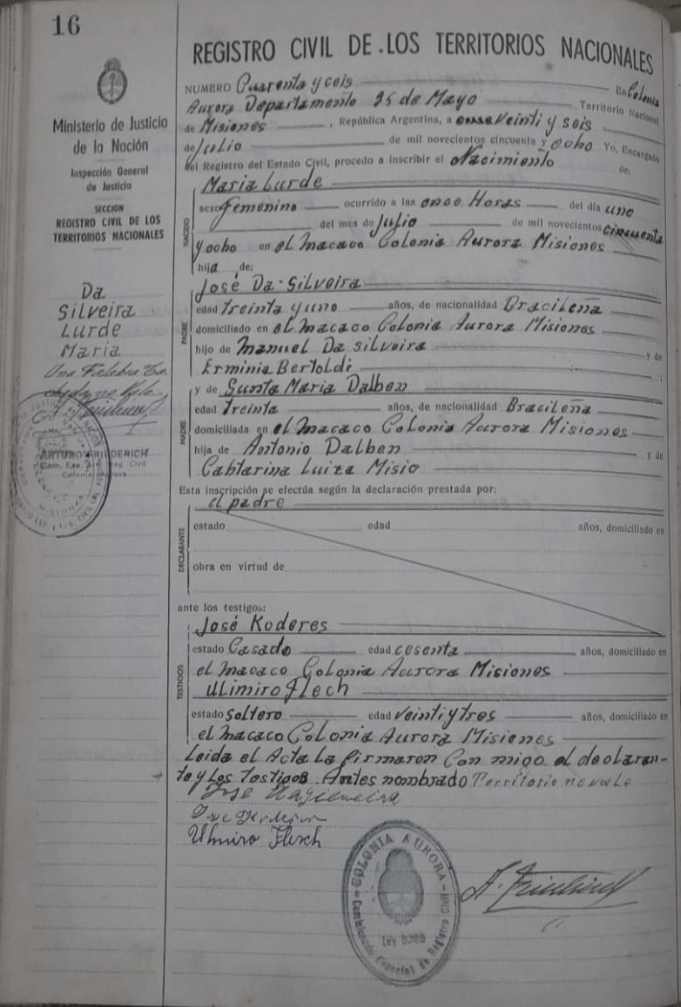 16
Ministerio de Justicia
de la Nación
Inspección General
de Justicia
SECCION
REGISTRO CIVIL DE LOS
TERRITORIOS NACIONALES
Da
Silveira
Lurde
Maria
Una Palabra
ARTURO
REGISTRO CIVIL DE LOS TERRITORIOS NACIONALES
NUMERO Cuarenta y ceis En Colonia
Aurora Departamento 25 de Mayo Territorio Nacional
de Misiones, República Argentina, a veinti y seis
de Julio de mil novecientos cincuenta y ocho Yo, Encargado
del Registro del Estado Civil, procedo a inscribir el Nacimiento de:
NACIDO
Maria Lurde
sexo femenino ocurrido a las once Horas del día uno
del mes de Julio de mil novecientos cincuenta
y ocho en el Macaco Colonia Aurora Misiones
hija de:
PADRE
José Da-Silveira
edad treinta y uno años, de nacionalidad Bracileña
domiciliado en el Macaco Colonia Aurora Misiones
hijo de Manuel Da Silveira y de
Erminia Bertoldi ;
MADRE
y de Sunta Maria Dalben
edad Treinta años, de nacionalidad Bracileña
domiciliada en el Macaco Colonia Aurora Misiones
hija de Antonio Dalben y de
Luiza Misio
Esta inscripción se efectúa según la declaración prestada por:
el padre
DECLARANTE
estado edad años, domiciliado en
obra en virtud de
ante los testigos:
TESTIGOS
José Koderes
estado Casado edad cesenta años, domiciliado en
el Macaco Colonia Aurora Misiones
Ulimiro Flech
estado Soltero edad veinti y tres años, domiciliado en
el Macaco Colonia Aurora Misiones
Leida el Acta La firmaron Con migo el declaran-
te y Los testigos Antes nombrado Territorio no vale
Jose
Ulmiro Flesch
COLONIA AURORA